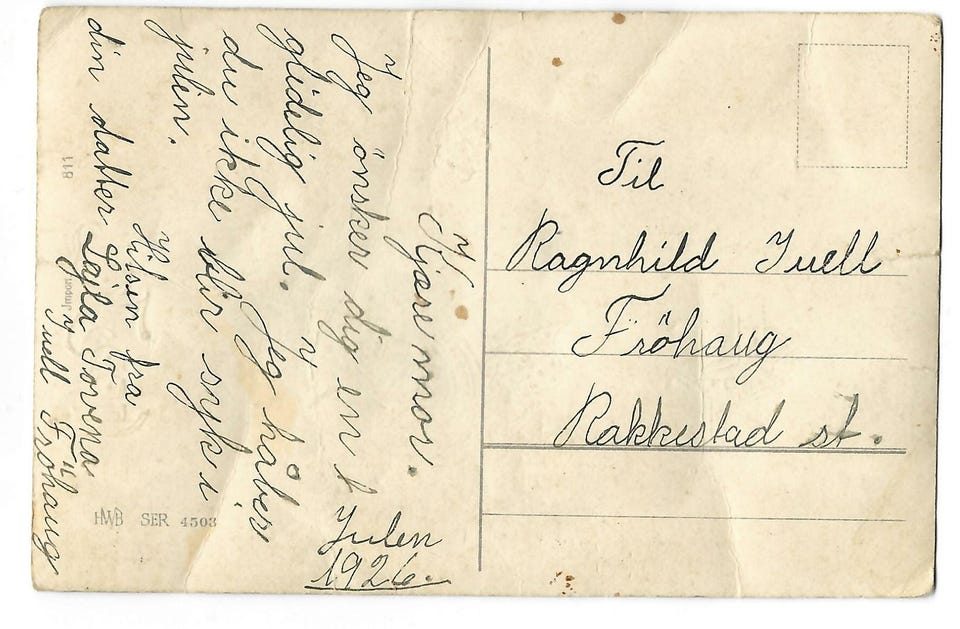 Kjære mor.
Jeg önsker dig en
glidelig jul. Jeg håber
du ikke blir syk i
julin.
Hilsin fra
din datter Lajla Tovena
Juell Fröhaug
Julen
1926.
Til
Ragnhild Juell
Fröhaug
Rakkestad st.
811
HWB SER 4503